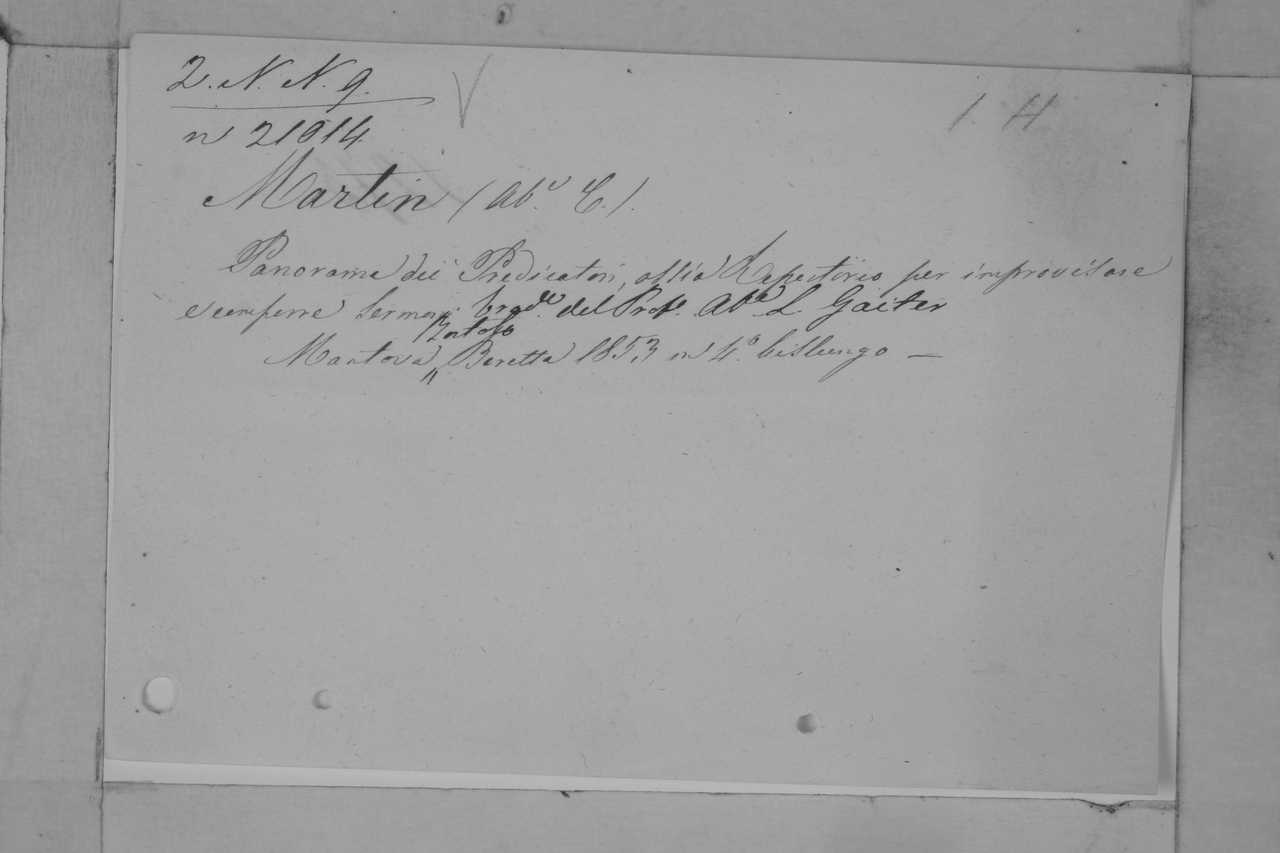 2. N. N. 9.
1. H
n 21014
Martin (Ab.e E.).
Panorama dei Predicatori, ossia Repertorio per improvisare
e comporre Sermoni trad.e del Prof. Ab.e L. Gaiter
Mantova, Bortolo Beretta 1853 in 4.o bislungo —